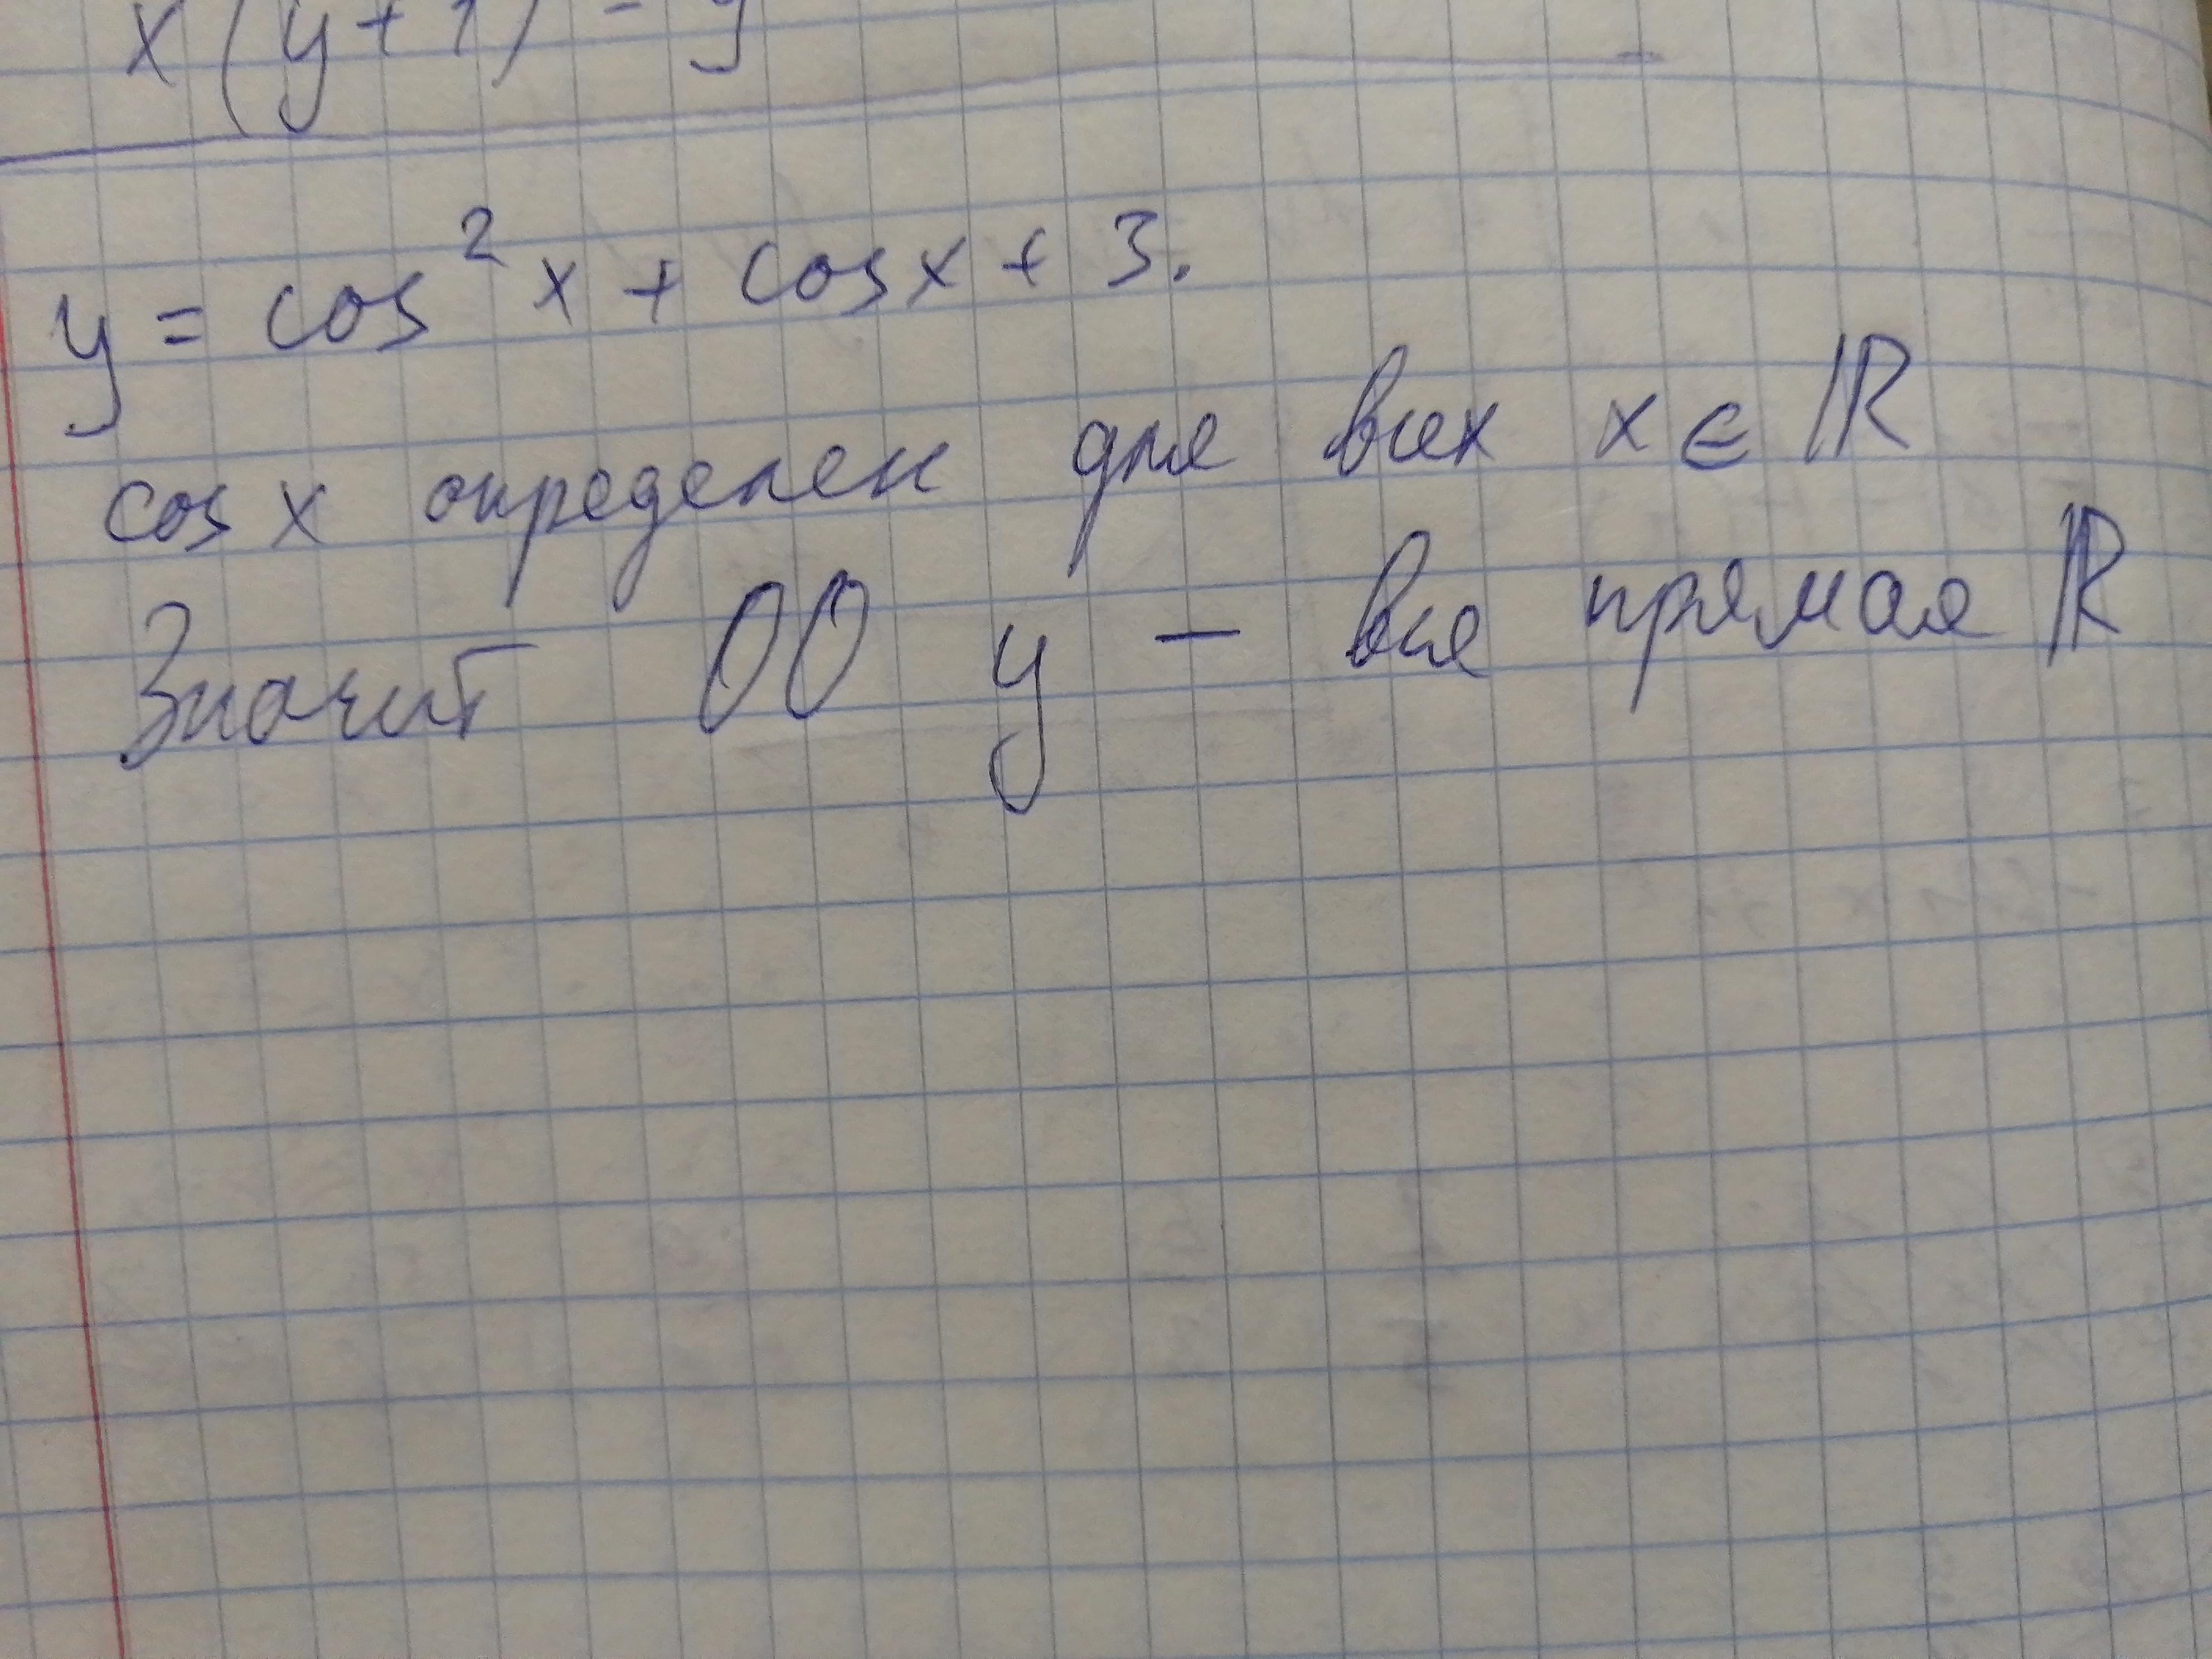 x(y+1) = y
y = cos²x + cosx + 3.
cos x определен для всех x ∈ ℝ
Значит ОО y – вся прямая ℝ